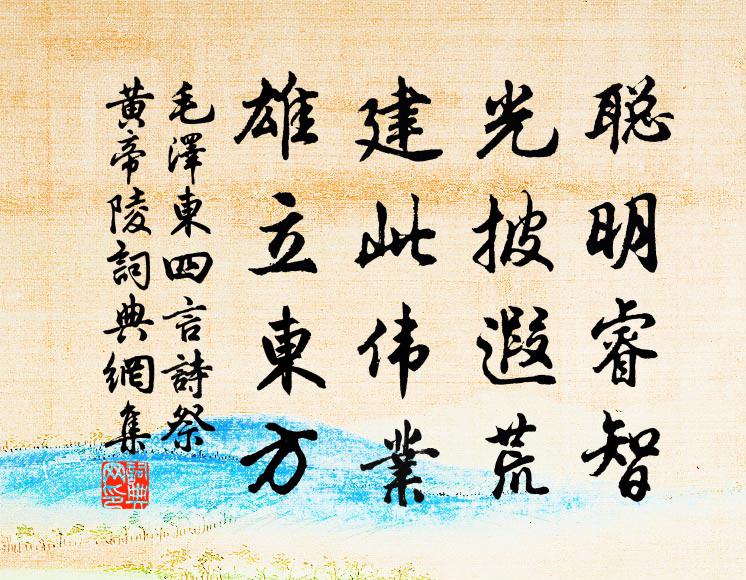 聪明睿智
光披遐荒
建此伟業
雄立東方
毛澤東四言詩祭
黃帝陵詞典網集